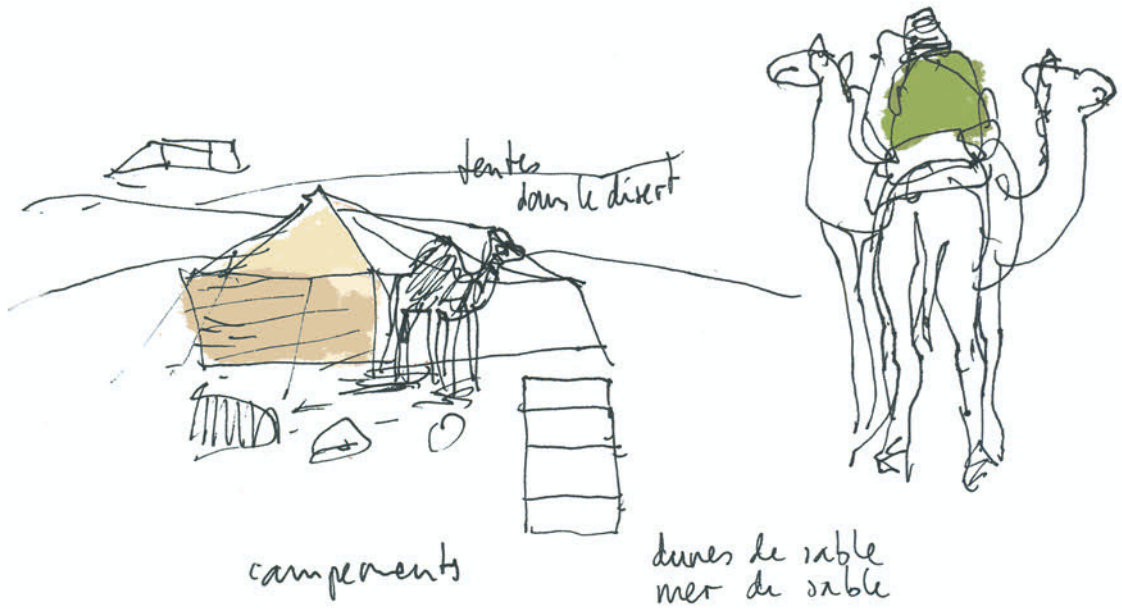 tentes
dans le désert
campements
dunes de sable
mer de sable